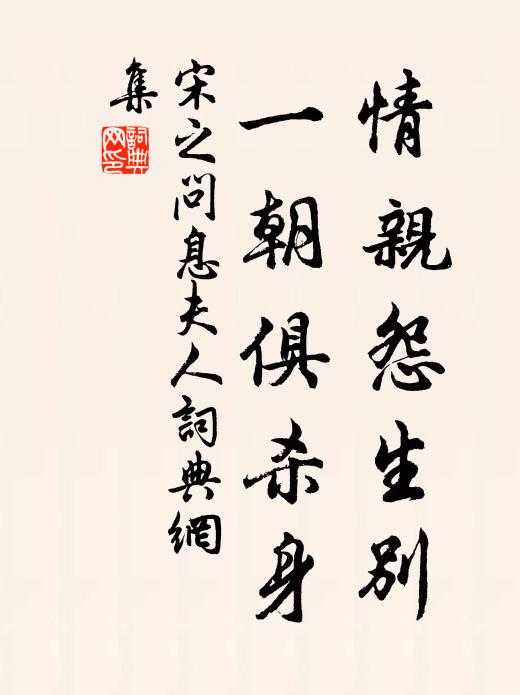 情親怨生別
一朝俱杀身
宋之問息夫人詞典網
集
詞典網印